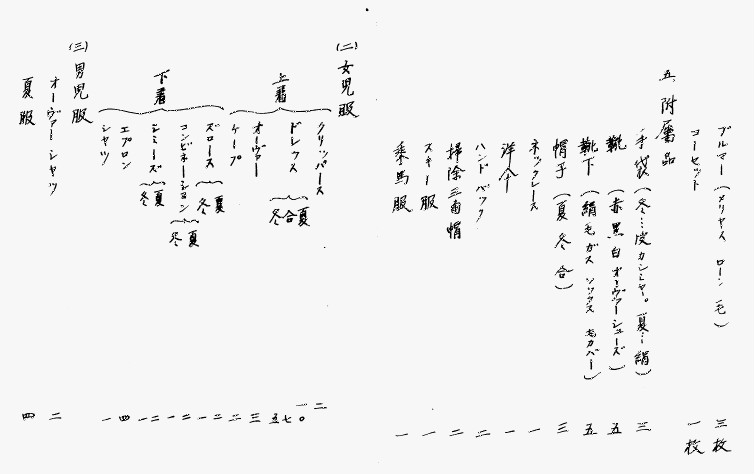 ブルマー（メリヤス ローン 毛） 三枚
コーセット 一枚
五、附属品
手袋（冬…皮カシミヤ。夏…絹） 三
靴（赤黒白オーヴァーシューズ） 五
靴下（絹毛ガス ソックス 毛カバー） 五
帽子（夏 冬 合） 三
ネックレース 一
洋傘 一
ハンドバック 二
掃除三角帽 二
スキー服 一
乗馬服 一
(二)女児服
上着
クリッパース 二
ドレウス 夏 一〇
合 七
冬 五
オーヴァー 三
ケープ 二
下着
ズロース 夏 二
冬 二
コンビネーション 夏 二
冬 二
シミーズ 夏 二
冬 一
エプロン 四
シャツ 一
(三)男児服
オーヴァーシャツ 二
夏服 四